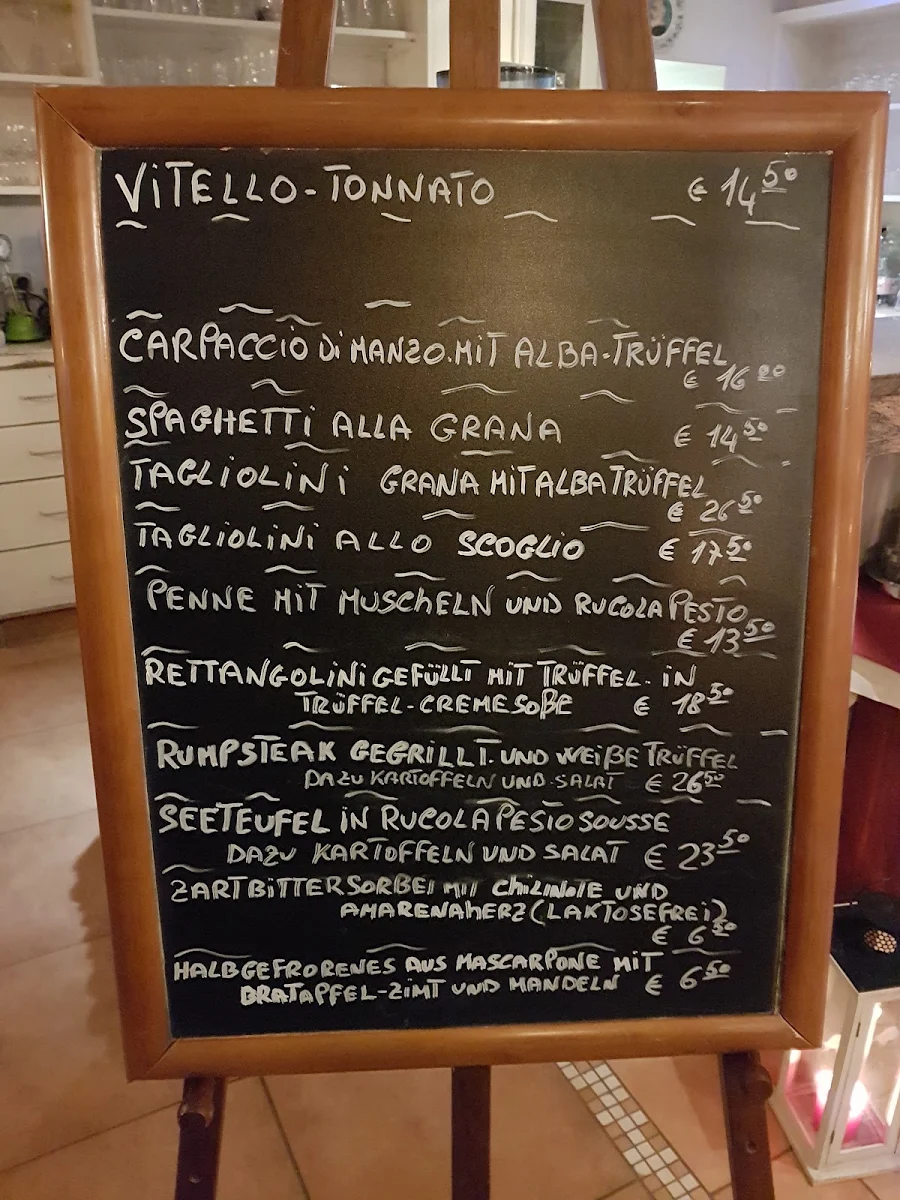 VITELLO-TONNATO € 14 50
CARPACCIO DI MANZO.MIT ALBA-TRÜFFEL
€ 16 20
SPAGHETTI ALLA GRANA € 14 50
TAGLIOLINI GRANA MIT ALBA TRÜFFEL
€ 26 50
TAGLIOLINI ALLO SCOGLIO € 17 50
PENNE MIT MUSCHELN UND RUCOLA PESTO
€ 13 50
RETTANGOLINI GEFÜLLT MIT TRÜFFEL. IN
TRÜFFEL-CREMESOßE € 18 50
RUMPSTEAK GEGRILLT. UND WEIßE TRÜFFEL
DAZU KARTOFFELN UND SALAT € 26 50
SEETEUFEL IN RUCOLA PESTO SOUSSE
DAZU KARTOFFELN UND SALAT € 23 50
ZARTBITTERSORBET MIT CHILINOTE UND
AMARENAHERZ (LAKTOSEFREI)
€ 6 50
HALBGEFRORENES AUS MASCARPONE MIT
BRATAPFEL-ZIMT UND MANDELN € 6 50